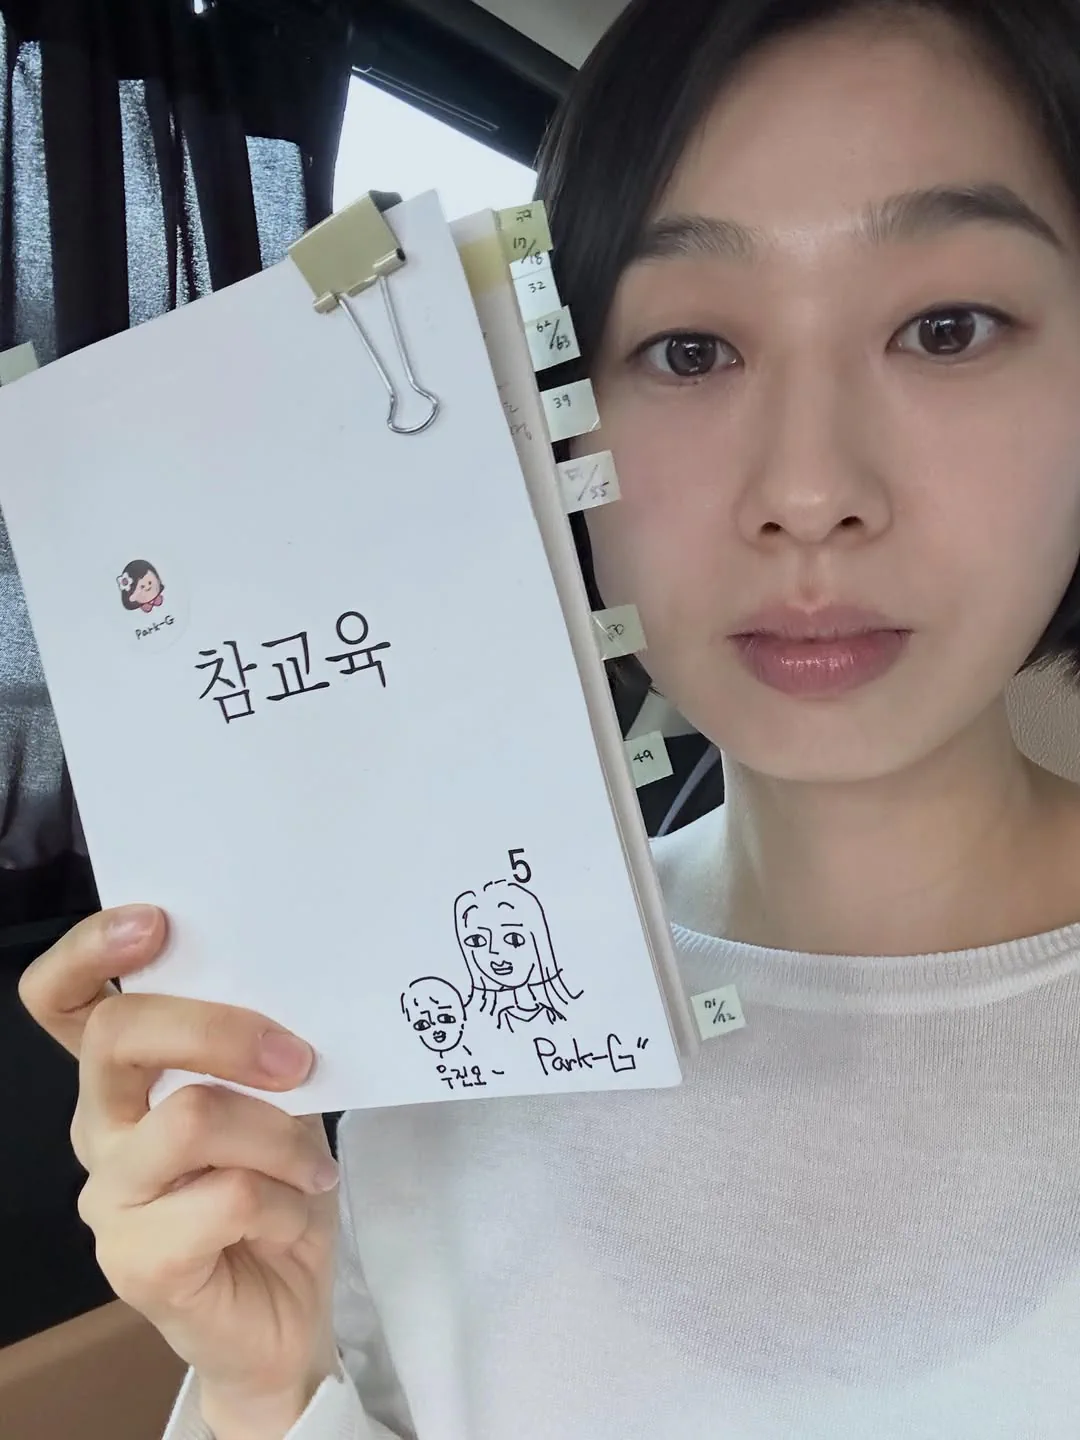 Park-G
참교육
5
우진오~
Park-G"
39
17/18
32
62/63
39
/55
50
49
71/72